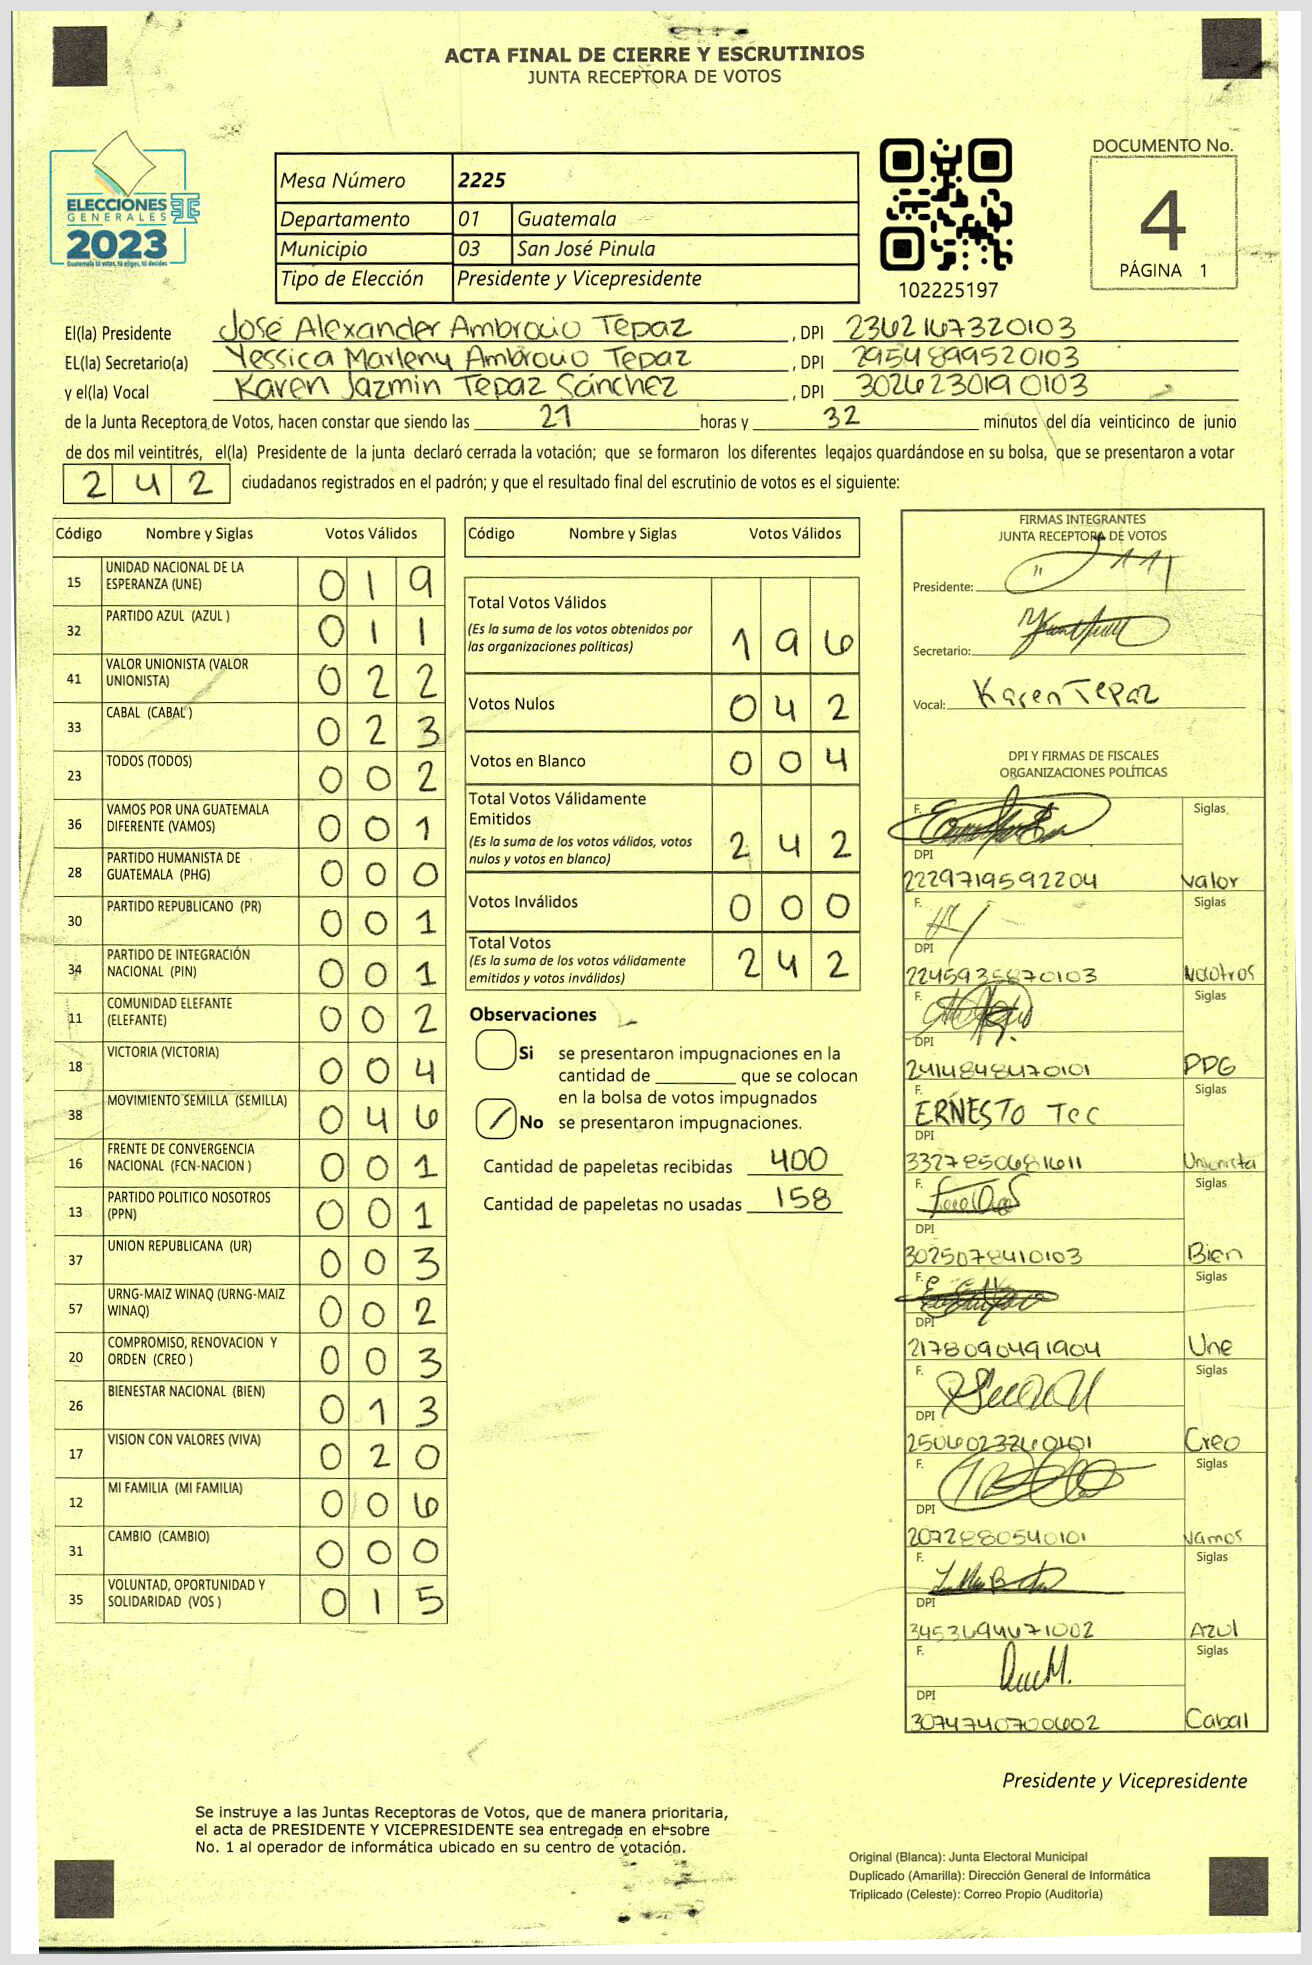 ACTA FINAL DE CIERRE Y ESCRUTINIOS
JUNTA RECEPTORA DE VOTOS
ELECCIONES
GENERALES
2023
Guatemala tú votas, tú eliges, tú decides
Mesa Número 2225
Departamento 01 Guatemala
Municipio 03 San José Pinula
Tipo de Elección Presidente y Vicepresidente
102225197
DOCUMENTO No.
4
PÁGINA 1
El(la) Presidente José Alexander Ambrocio Tepaz , DPI 2362167320103
EL(la) Secretario(a) Yessica Marleny Ambrocio Tepaz , DPI 2954899520103
y el(la) Vocal Karen Jazmin Tepaz Sánchez , DPI 3026230190103
de la Junta Receptora de Votos, hacen constar que siendo las 21 horas y 32 minutos del día veinticinco de junio
de dos mil veintitrés, el(la) Presidente de la junta declaró cerrada la votación; que se formaron los diferentes legajos guardándose en su bolsa, que se presentaron a votar
242 ciudadanos registrados en el padrón; y que el resultado final del escrutinio de votos es el siguiente:
Código Nombre y Siglas Votos Válidos
15 UNIDAD NACIONAL DE LA ESPERANZA (UNE) 019
32 PARTIDO AZUL (AZUL ) 011
41 VALOR UNIONISTA (VALOR UNIONISTA) 022
33 CABAL (CABAL ) 023
23 TODOS (TODOS) 002
36 VAMOS POR UNA GUATEMALA DIFERENTE (VAMOS) 001
28 PARTIDO HUMANISTA DE GUATEMALA (PHG) 000
30 PARTIDO REPUBLICANO (PR) 001
34 PARTIDO DE INTEGRACIÓN NACIONAL (PIN) 001
11 COMUNIDAD ELEFANTE (ELEFANTE) 002
18 VICTORIA (VICTORIA) 004
38 MOVIMIENTO SEMILLA (SEMILLA) 046
16 FRENTE DE CONVERGENCIA NACIONAL (FCN-NACION ) 001
13 PARTIDO POLITICO NOSOTROS (PPN) 001
37 UNION REPUBLICANA (UR) 003
57 URNG-MAIZ WINAQ (URNG-MAIZ WINAQ) 002
20 COMPROMISO, RENOVACION Y ORDEN (CREO ) 003
26 BIENESTAR NACIONAL (BIEN) 013
17 VISION CON VALORES (VIVA) 020
12 MI FAMILIA (MI FAMILIA) 006
31 CAMBIO (CAMBIO) 000
35 VOLUNTAD, OPORTUNIDAD Y SOLIDARIDAD (VOS ) 015
Código Nombre y Siglas Votos Válidos
Total Votos Válidos
(Es la suma de los votos obtenidos por las organizaciones políticas) 196
Votos Nulos 042
Votos en Blanco 004
Total Votos Válidamente Emitidos
(Es la suma de los votos válidos, votos nulos y votos en blanco) 242
Votos Inválidos 000
Total Votos
(Es la suma de los votos válidamente emitidos y votos inválidos) 242
Observaciones
Si se presentaron impugnaciones en la
cantidad de ________ que se colocan
en la bolsa de votos impugnados
No se presentaron impugnaciones.
Cantidad de papeletas recibidas 400
Cantidad de papeletas no usadas 158
FIRMAS INTEGRANTES
JUNTA RECEPTORA DE VOTOS
Presidente:
Secretario:
Vocal: Karen Tepaz
DPI Y FIRMAS DE FISCALES
ORGANIZACIONES POLÍTICAS
F. Siglas
DPI
2229719592204 Valor
F. Siglas
DPI
2245935870103 Nosotros
F. Siglas
DPI
2414848470101 PPG
F. ERNESTO Tec Siglas
DPI
3327850681611 Unionista
F. Siglas
DPI
3025078410103 Bien
F. Siglas
DPI
2178090491904 Une
F. Siglas
DPI
2506023260101 Creo
F. Siglas
DPI
2072880540101 Vamos
F. Siglas
DPI
3453694671002 AZUl
F. Siglas
DPI
3074740700602 Cabal
Presidente y Vicepresidente
Se instruye a las Juntas Receptoras de Votos, que de manera prioritaria,
el acta de PRESIDENTE Y VICEPRESIDENTE sea entregada en el sobre
No. 1 al operador de informática ubicado en su centro de votación.
Original (Blanca): Junta Electoral Municipal
Duplicado (Amarilla): Dirección General de Informática
Triplicado (Celeste): Correo Propio (Auditoría)